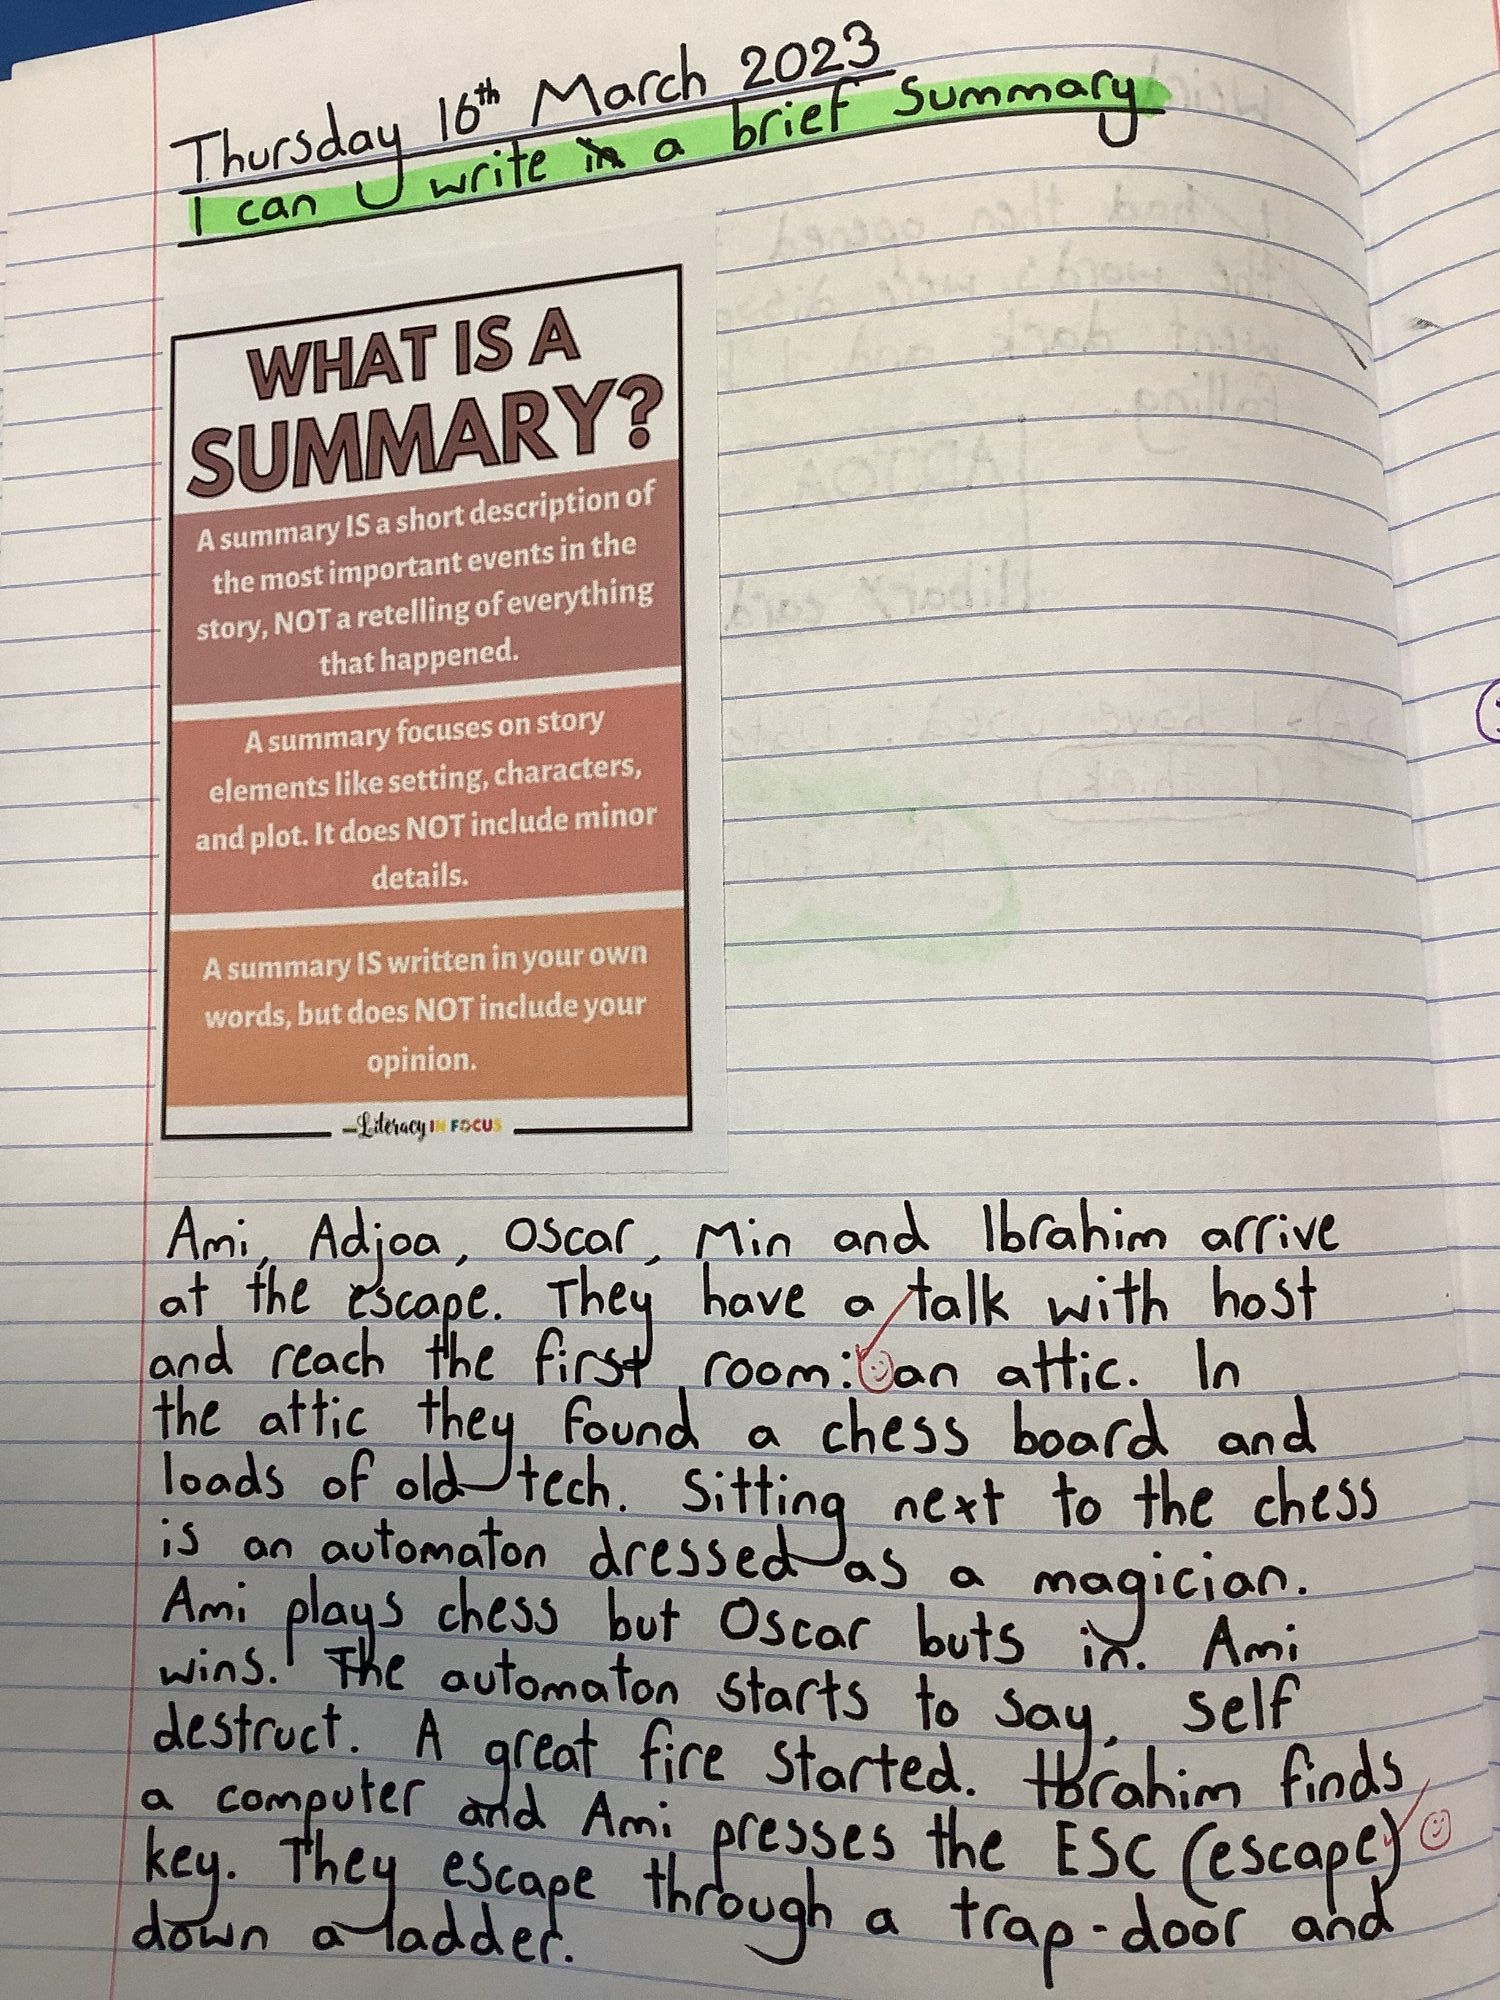 Thursday 16th March 2023
I can write in a brief summary
WHAT IS A
SUMMARY?
A summary IS a short description of
the most important events in the
story, NOT a retelling of everything
that happened.
A summary focuses on story
elements like setting, characters,
and plot. It does NOT include minor
details.
A summary IS written in your own
words, but does NOT include your
opinion.
Literacy IN FOCUS
Ami, Adjoa, Oscar, Min and Ibrahim arrive
at the escape. They have a talk with host
and reach the first room: an attic. In
the attic they found a chess board and
loads of old tech. Sitting next to the chess
is an automaton dressed as a magician.
Ami plays chess but Oscar buts in. Ami
wins. The automaton starts to say, self
destruct. A great fire started. Ibrahim finds
a computer and Ami presses the ESC (escape)
key. They escape through a trap-door and
down a ladder.